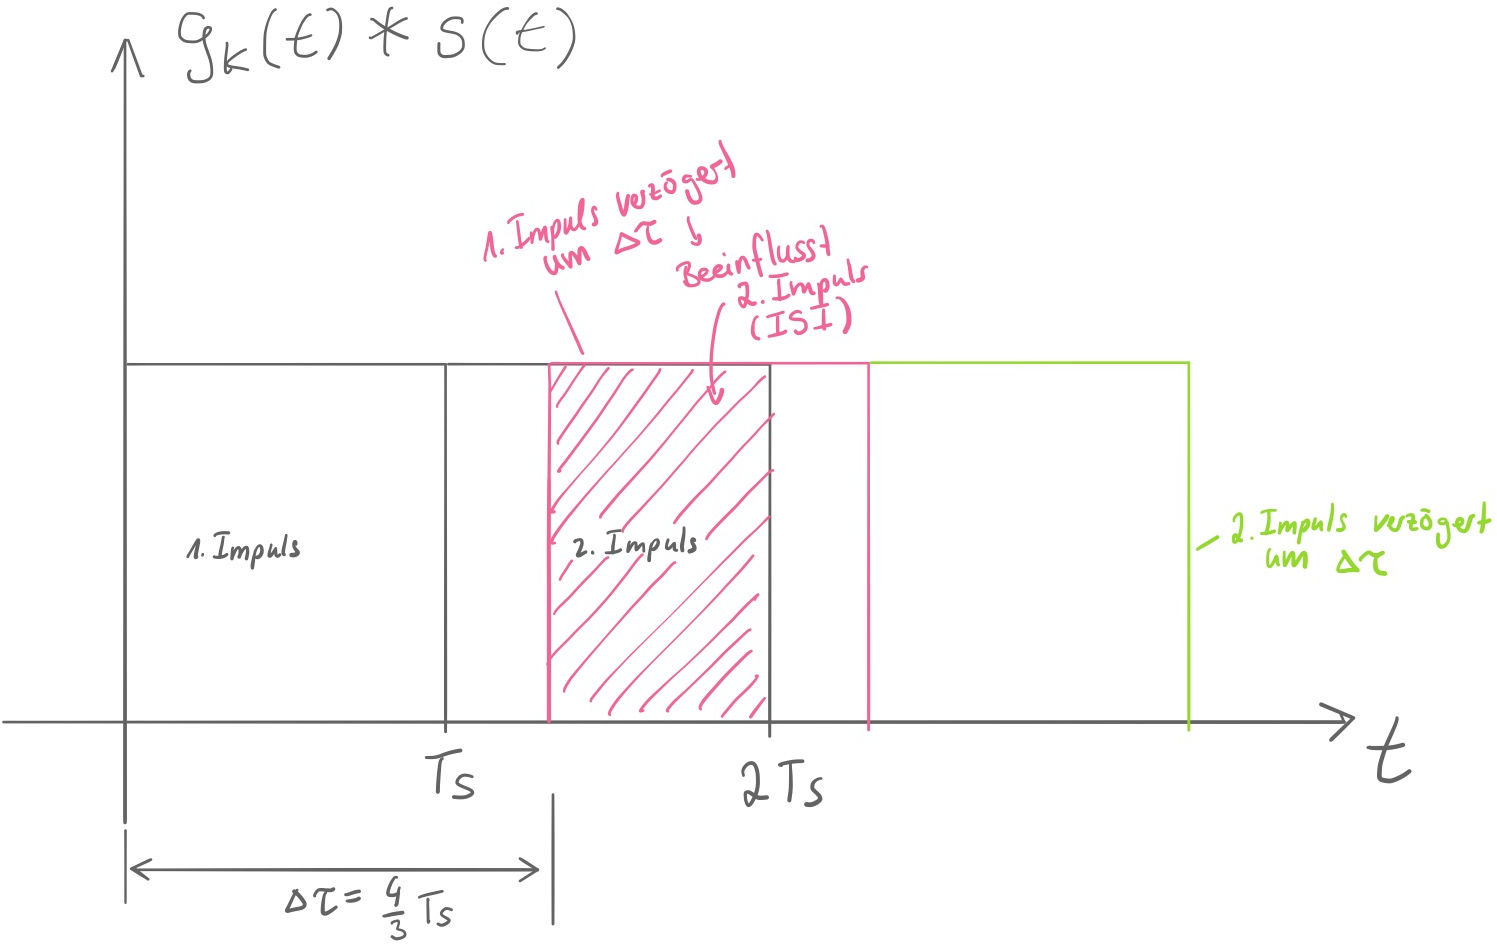 gk(t) * s(t)
1. Impuls verzögert
um Δτ
Beeinflusst
2. Impuls
(ISI)
1. Impuls
2. Impuls
2. Impuls verzögert
um Δτ
Ts
2Ts
t
Δτ = 4/3 Ts